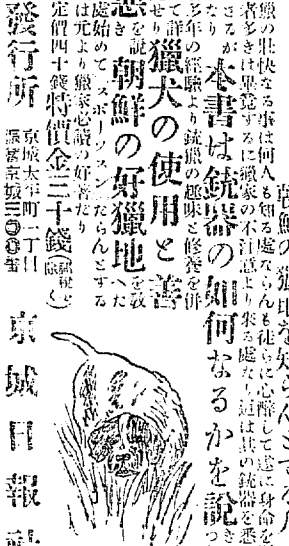 朝鮮の獵地を知らんとする
獵の壯快なる事は何人も知る處ならんも徒らに心醉して遂に身命を
者多きは畢竟するに獵家の不注意より來る處なり
さるが本書は銃器の如何なるかを說き
多年の經驗より銃獵の趣味と修養を併
せて詳
なり獵犬の使用と善
惡を說き朝鮮の好獵地を敎
へた
處始めてスポーツマンたらんとする
は元より獵家必讀の好著たり
定價四十錢特價金三十錢
發行所
京城太平町一丁目
振替京城三〇〇番
京城日報社